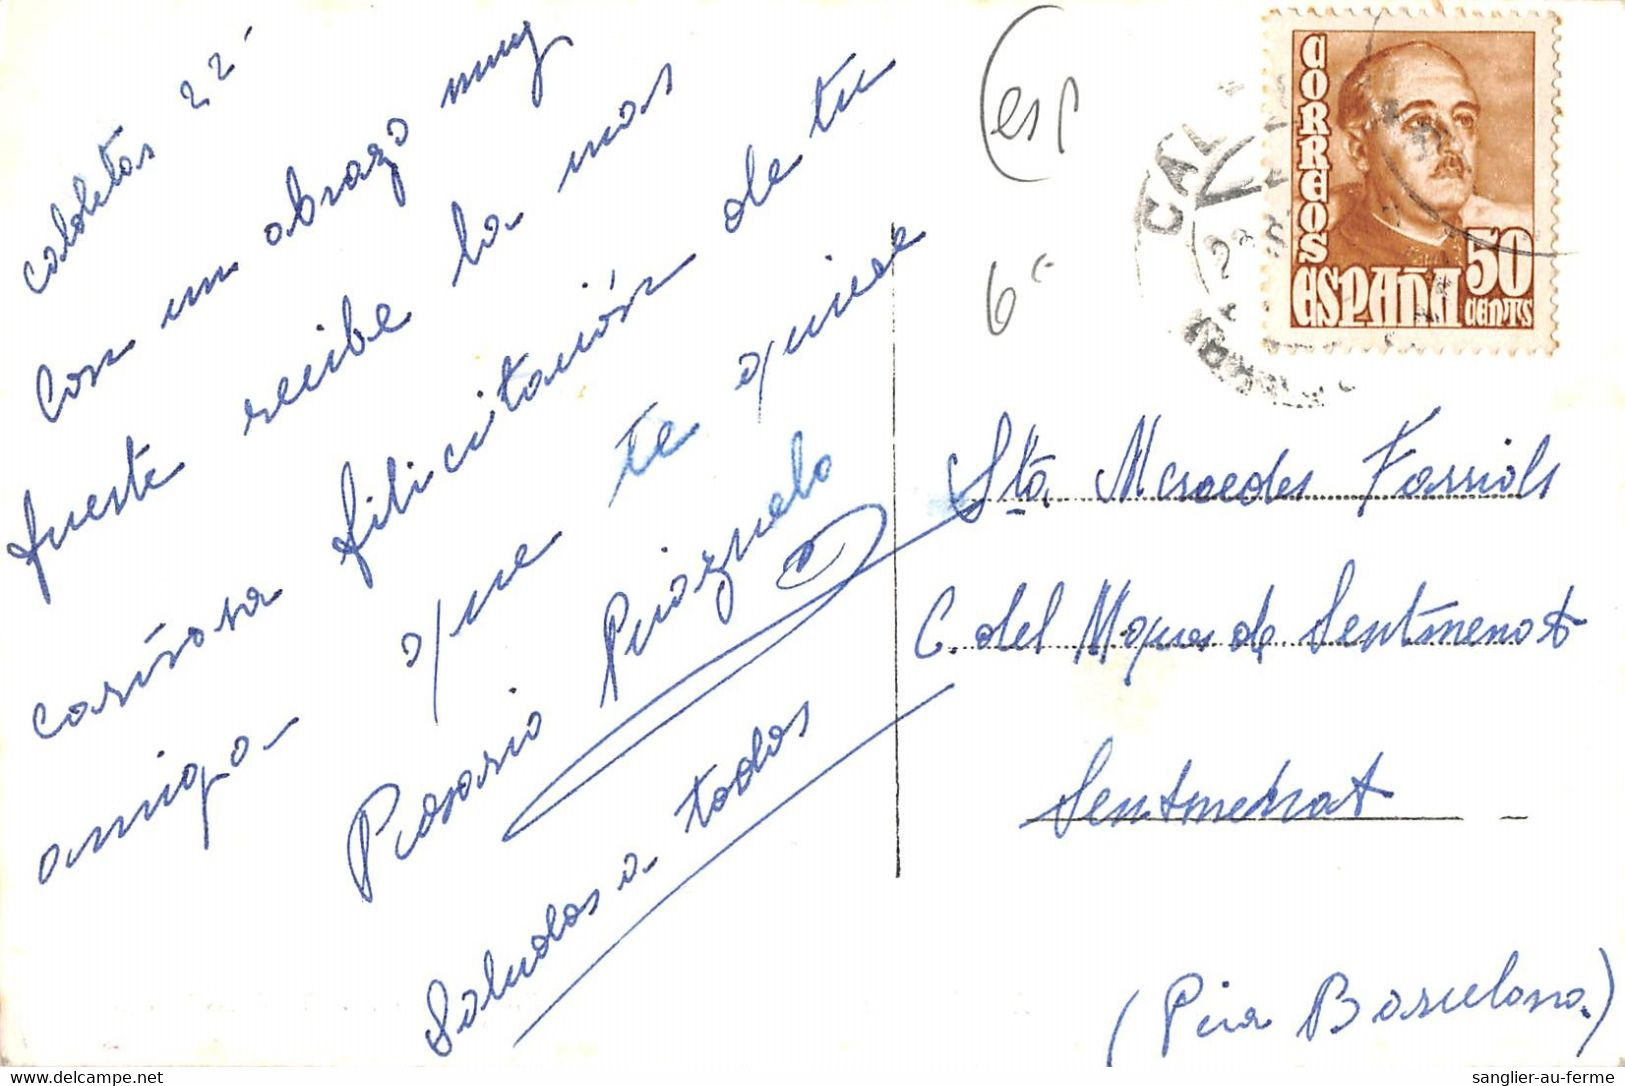 Caldetas 22-
Con un abrazo muy
fuerte recibe la mas
cariñosa filicitación de tu
amiga que te quiere
Rosario
Saludos a todos
(esp
6€
CORREOS
ESPAÑA
50
CENTS
CAL
Sta. Mercedes Farriols
C. del Marques de Sentmenat
Sentmenat
(Pcia Barcelona)
sanglier-au-ferme